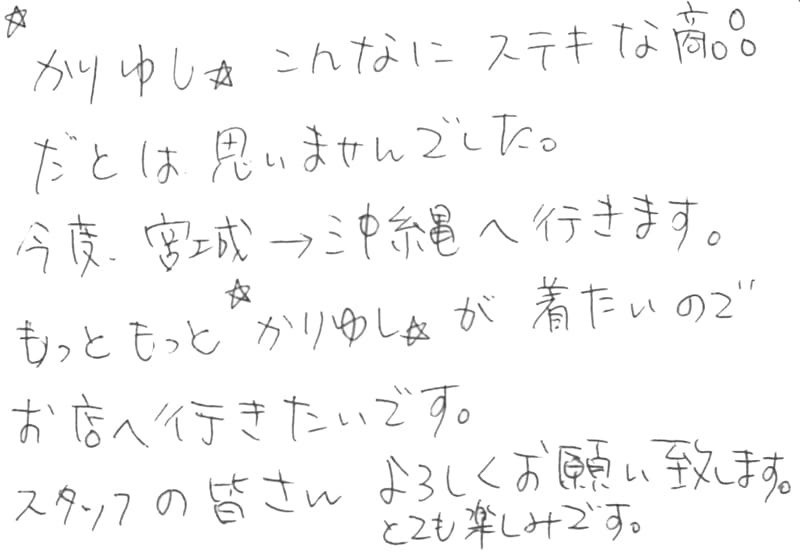 ☆かりゆし☆ こんなに ステキな商品
だとは思いませんでした。
今度、宮城→沖縄へ行きます。
もっともっと ☆かりゆし☆が 着たいので
お店へ行きたいです。
スタッフの皆さん よろしくお願い致します。
とても楽しみです。